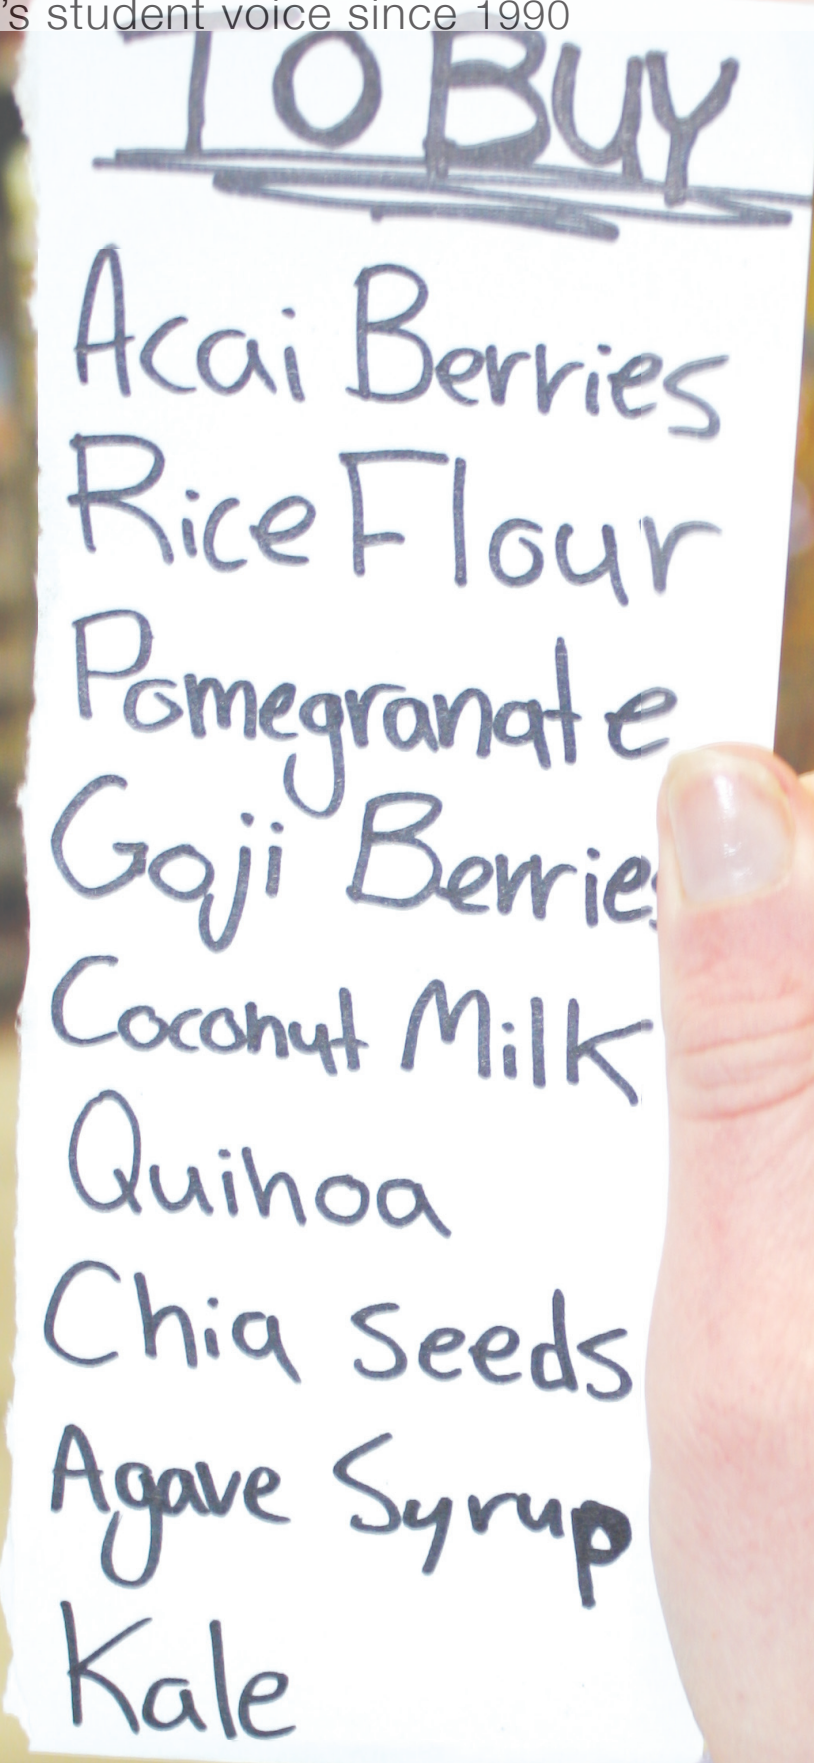 's student voice since 1990
TO BUY
Acai Berries
Rice Flour
Pomegranate
Goji Berries
Coconut Milk
Quinoa
Chia Seeds
Agave Syrup
Kale